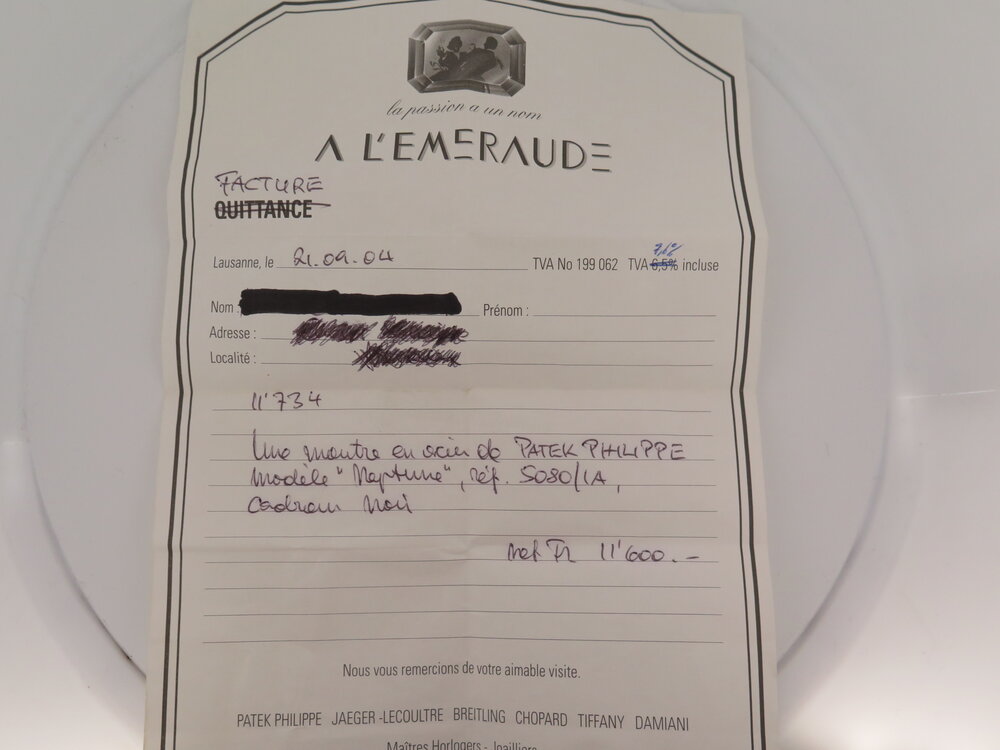 la passion a un nom
A L'EMERAUDE
FACTURE
QUITTANCE
Lausanne, le 21.09.04 TVA No 199 062 TVA 6,5% 7,6% incluse
Nom : Prénom :
Adresse :
Localité :
11'734
Une montre en acier de PATEK PHILIPPE
Modèle "Neptune", réf. 5080/1A,
Cadran Noir
net Fr 11'600.-
Nous vous remercions de votre aimable visite.
PATEK PHILIPPE JAEGER-LECOULTRE BREITLING CHOPARD TIFFANY DAMIANI
Maîtres Horlogers - Joailliers